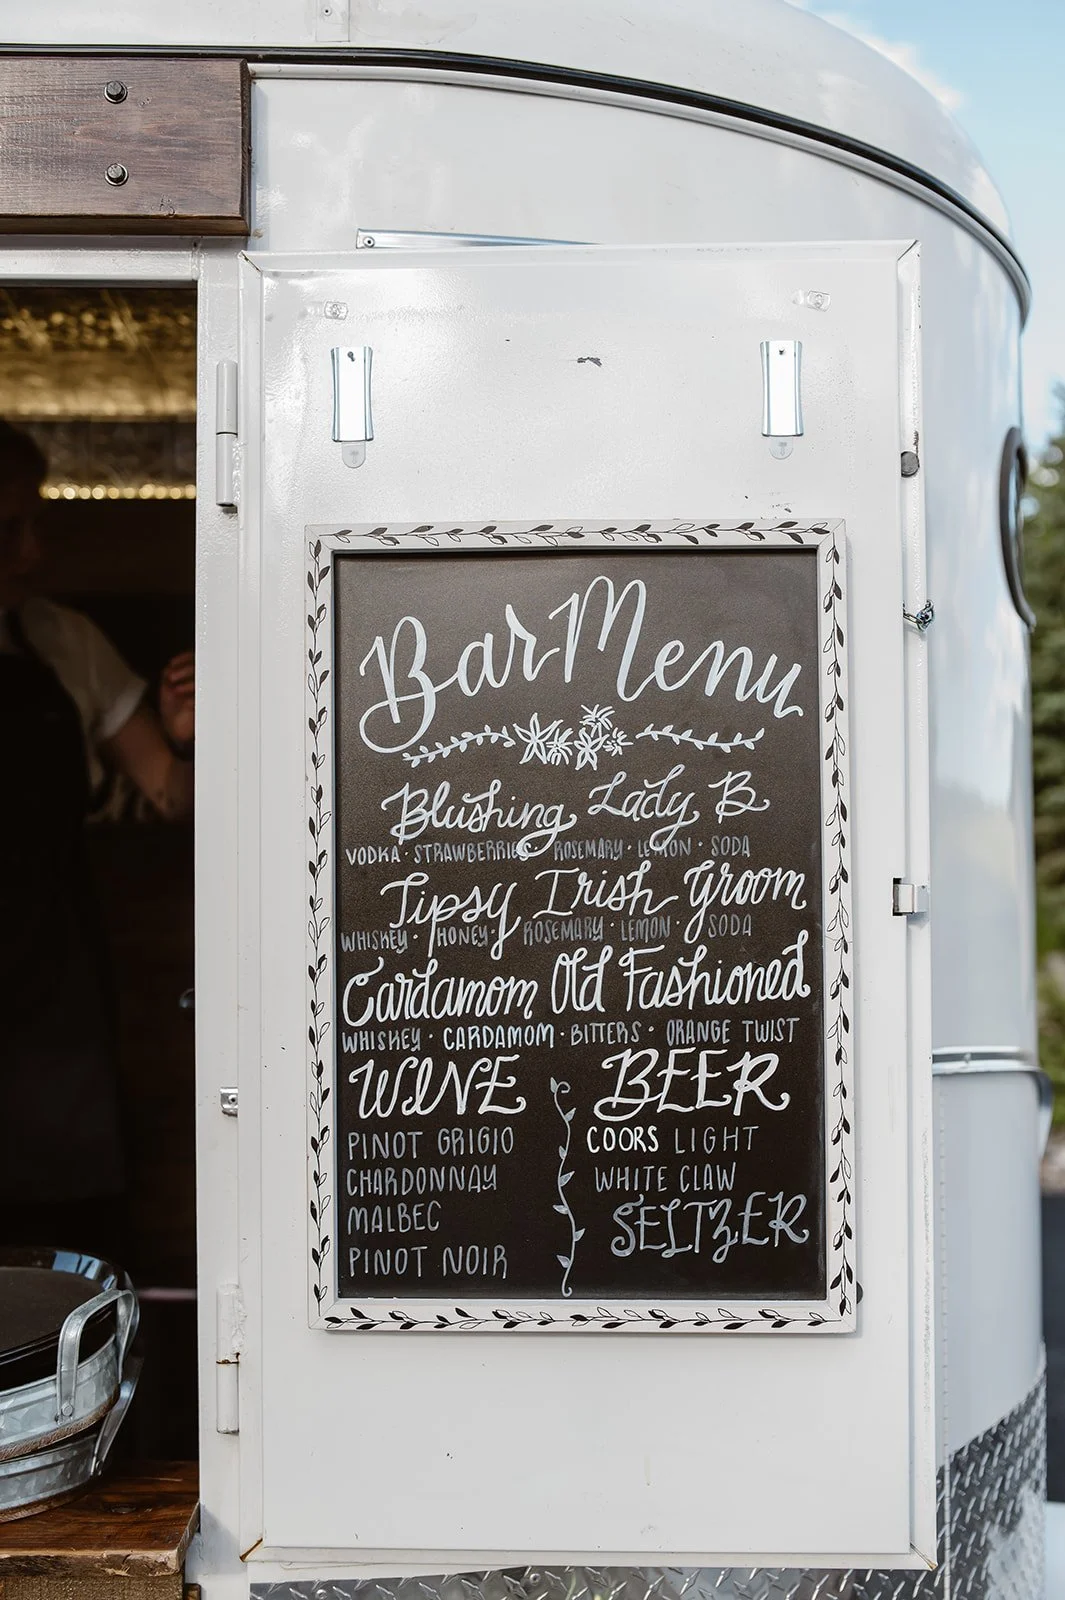 Bar Menu
Blushing Lady B
VODKA · STRAWBERRIES · ROSEMARY · LEMON · SODA
Tipsy Irish Groom
WHISKEY · HONEY · ROSEMARY · LEMON · SODA
Cardamom Old Fashioned
WHISKEY · CARDAMOM · BITTERS · ORANGE TWIST
WINE
PINOT GRIGIO
CHARDONNAY
MALBEC
PINOT NOIR
BEER
COORS LIGHT
WHITE CLAW
SELTZER